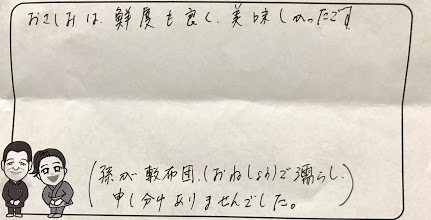 おさしみは、鮮度も良く、美味しかったです
(孫が敷布団、(おねしょ)で濡らし、
申し分けありませんでした。)